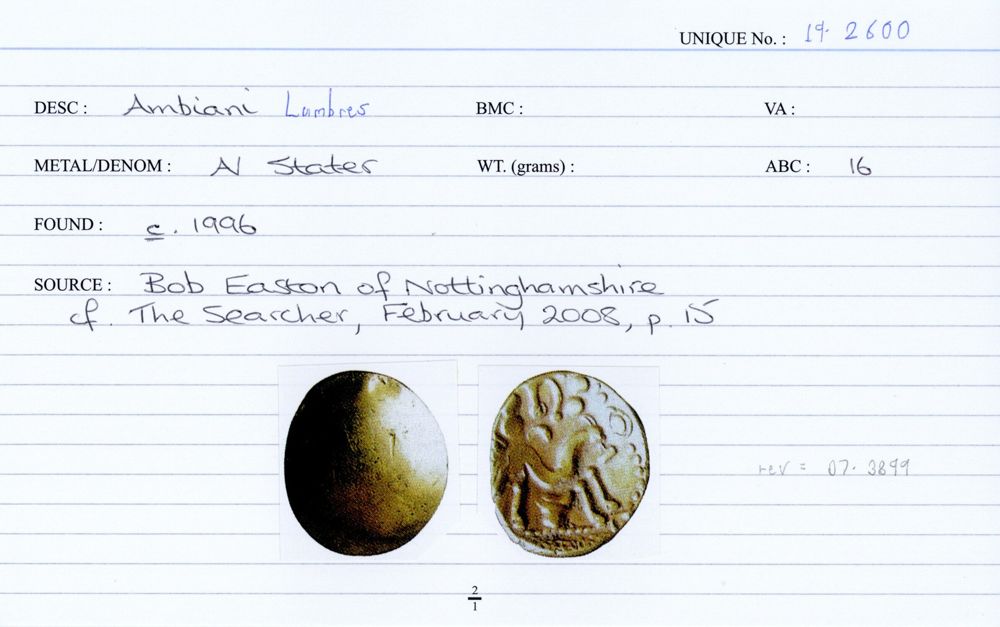 UNIQUE No. : 19. 2600
DESC : Ambiani Lumbres BMC : VA :
METAL/DENOM : N Stater WT. (grams) : ABC : 16
FOUND : c. 1996
SOURCE : Bob Easton of Nottinghamshire
cf. The Searcher, February 2008, p. 15
rev = 07. 3899
2
1